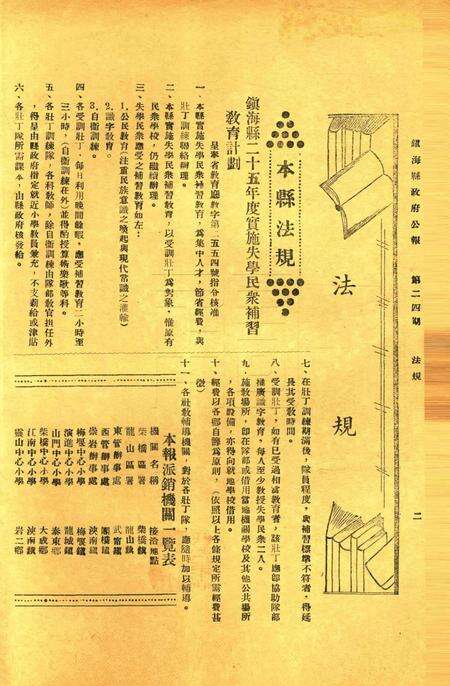 鎮海縣政府公報 第二四期 法規
二
法規
本縣法規
鎮海縣二十五年度實施失學民衆補習
教育計劃
呈奉省教育廳教字第二五五四號指令核准
一、本縣實施失學民衆補習教育，為集中人才，節省經費，與
壯丁訓練聯絡辦理。
二、本縣實施失學民衆補習教育，以受訓壯丁為對象，惟原有
民衆學校，仍繼續辦理。
三、失學民衆應受之補習教育如左：
1.公民教育（注重民族意識之喚起與現代常識之灌輸）
2.識字教育。
3.自衛訓練。
四、各受訓壯丁，每日利用晚間餘暇，應受補習教育二小時至
三小時，（自衛訓練在外）並得酌授算術樂歌等科。
五、各壯丁訓練隊，各科教師，除自衛訓練由隊部教官担任外
，得呈由縣政府指定就近小學教員兼充，不支薪給或津貼
六、各壯丁隊所需課本，由縣政府核發給。
七、在壯丁訓練期滿後，隊員程度，與補習標準不符者，得延
長其受教時間。
八、受訓壯丁，如有已受過相當教育者，該壯丁應卽協助隊部
推廣識字教育，每人至少教授失學民衆二人。
九、施教場所，卽在隊部或借用當地機關學校及其他公共場所
，各項設備，亦得向就地學校借用。
十、經費以各鄉自籌為原則，（依照以上各條規定所需經費甚
微）
十一、各社教輔導機關，對於各壯丁隊，應隨時加以輔導。
本報派銷機關一覽表
機關名稱 接洽地點
柴橋區署 柴橋鎮
龍山區署 龍山鎮
東管辦事處 武甯鎮
西管辦事處 團橋鎮
崇岩辦事處 泱南鎮
梅堰中心小學 梅堰鎮
演進中心小學 龍城鎮
山門中心小學 泰東鄉
柴橋中心小學 大成鄉
江南中心小學 泱南鎮
靈山中心小學 岩二鄉